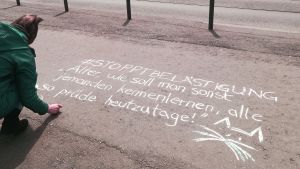 #STOPPTBELÄSTIGUNG
"Aber wie soll man sonst
jemanden kennenlernen, alle
so prüde heutzutage!"